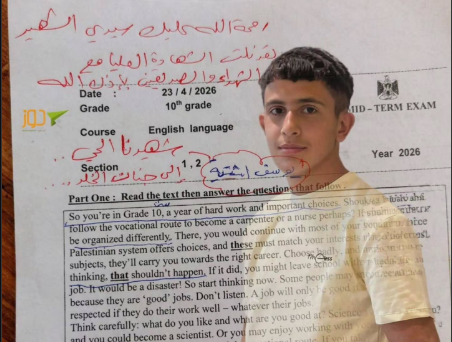 رحمة الله عليك سيدي الشهيد
لقد نلت الشهادة العليا مع
الشهداء والصديقين بإذن الله
دوز
Date : 23 / 4 / 2026
Grade 10th grade
MID - TERM EXAM
Course English language
Year 2026
شهيدنا الحي ..
Section 1 , 2
يوسف اشتية
إلى جنات الخلد ...
Part One : Read the text then answer the questions that follow.
So you're in Grade 10, a year of hard work and important choices. Should
follow the vocational route to become a carpenter or a nurse perhaps? If
be organized differently. There, you would continue with most of your
Palestinian system offers choices, and these must match your interests
subjects, they'll carry you towards the right career. Choose
thinking, that shouldn't happen. If it did, you might leave
job. It would be a disaster! So start thinking now. Some people may
because they are 'good' jobs. Don't listen. A job will only be good
respected if they do their work well – whatever their jobs.
Think carefully: what do you like and what are you good at? Science
and you could become a scientist. Or you may enjoy working with